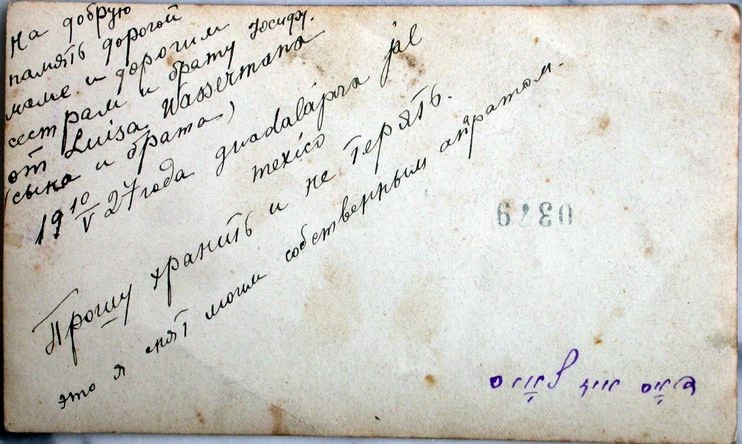 На добрую
память дорогой
маме и дорогим
сестрам и брату Іосифу.
от Luisa Wassermana
(сына и брата)
19 10/V 27 года guadalajara jal
mexico
Прошу хранить и не терять.
это я снят моим собственным апратом.
0379